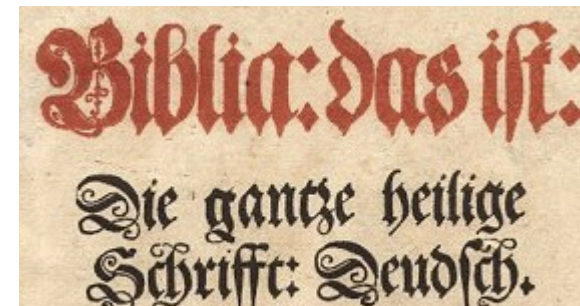 Biblia: das iſt:
Die gantze heilige
Schrifft: Deudſch.